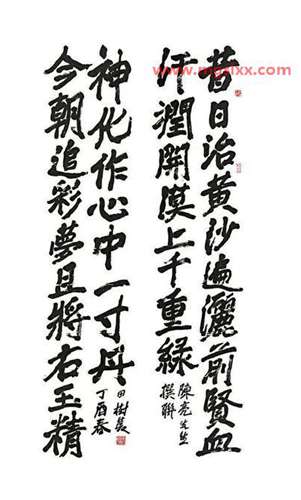 昔日治黄沙遍灑前賢血
汗潤開漠上千重綠
陳亮先生
撰聯
今朝追彩夢且將右玉精
神化作心中一寸丹
丁酉春
田樹萇